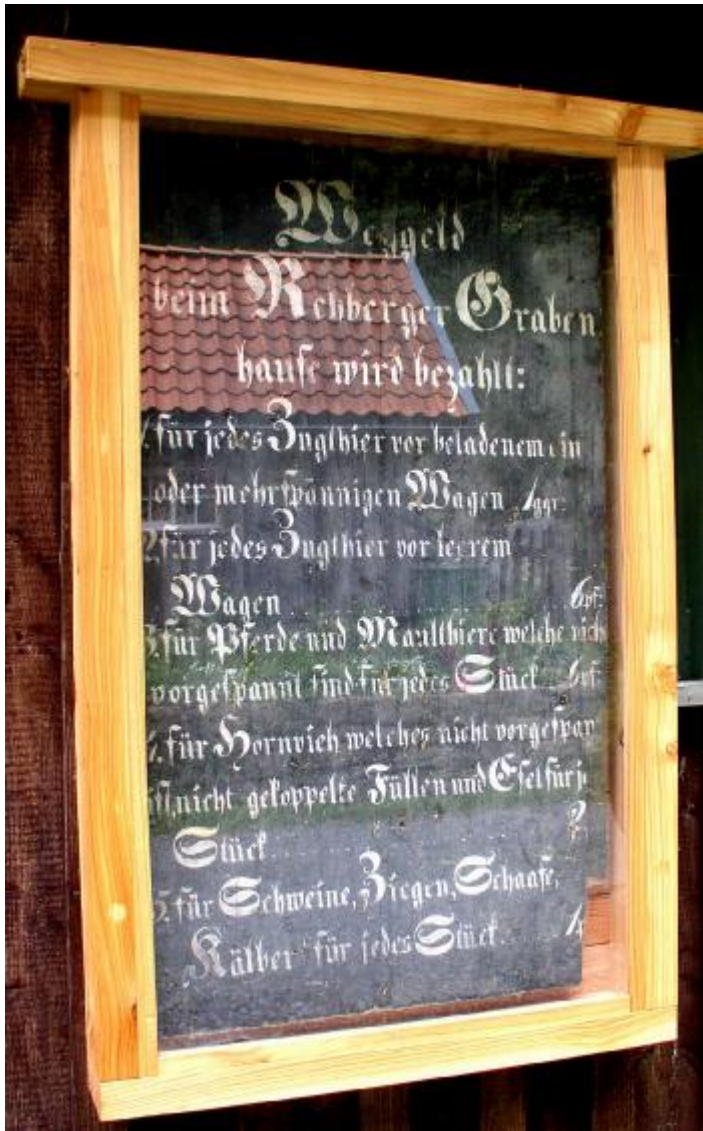 Weggeld
beim Rehberger Graben
hause wird bezahlt:
1. für jedes Zugthier vor beladenem ein
oder mehrspännigen Wagen 1ggr:
2. für jedes Zugthier vor leerem
Wagen ........ 6pf:
3. für Pferde und Maulthiere welche nich
vorgespannt sind für jedes Stück 6pf:
4. für Hornvieh welches nicht vorgespan
ist, nicht gekoppelte Füllen und Esel für j
Stück ........
5. für Schweine, Ziegen, Schaafe,
Kälber für jedes Stück .....